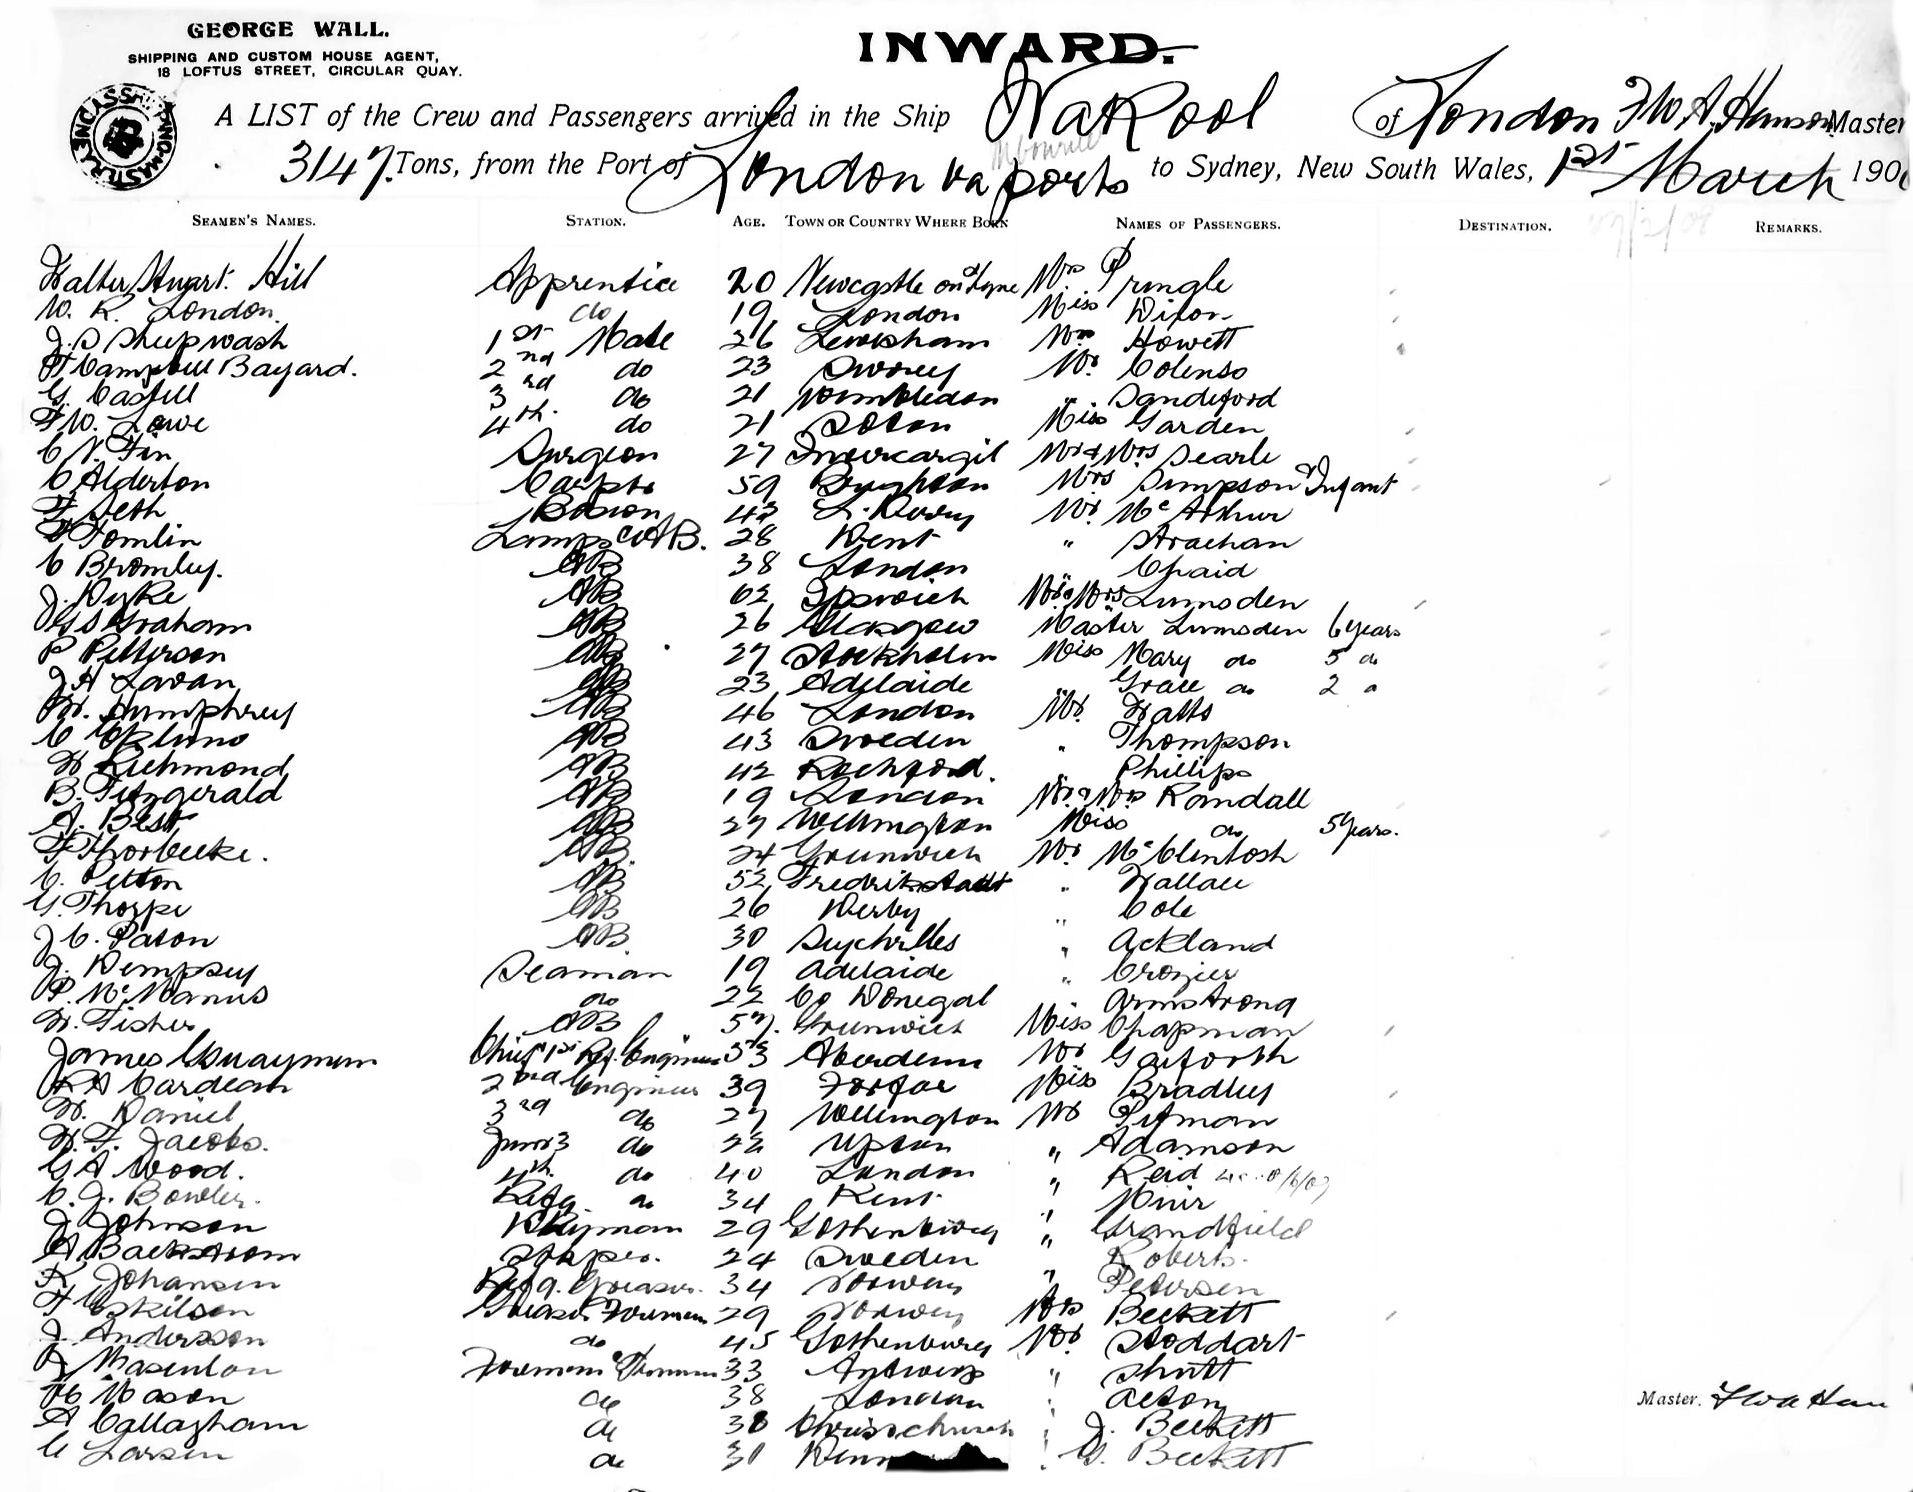 GEORGE WALL.
SHIPPING AND CUSTOM HOUSE AGENT,
18 LOFTUS STREET, CIRCULAR QUAY.
INWARD.
A LIST of the Crew and Passengers arrived in the Ship Wakool of London F W A Hanson Master
3147 Tons, from the Port of London via ports to Sydney, New South Wales, 1st March 190
SEAMEN'S NAMES. STATION. AGE. TOWN OR COUNTRY WHERE BORN NAMES OF PASSENGERS. DESTINATION. REMARKS.
Walter Stuart Hill Apprentice 20 Newcastle on Tyne Mrs Pringle
W. R. London do 19 London Miss Dixon
J. S Sheepwash 1st Mate 26 Lewisham Mrs Howett
F Campbell Bayard. 2nd do 23 Mr. Colenso
G. 3rd do 21 Wimbledon " Sandeford
F W. Lowe 4th. do 21 Miss Garden
C N. Surgeon 27 Invercargil Mr & Mrs Searle
C Alderton Carptr 59 Brighton Mrs Simpson & Infant
F Seth Bosion 42 L. Derry Mr. McArthur
F Tomlin Lamps & AB. 28 Kent " Strachan
C Bromley. AB 38 London " Chaid
J. Dyke AB 62 Ipswich Mr & Mrs Lumsden
G S Graham AB 26 Glasgow Master Lumsden 6 years
P Petterson AB 27 Stockholm Miss Mary do 5 do
J H Lavan AB 23 Adelaide " Grace do 2
W. Humphrey AB 46 London Mr. Watts
C Eklund AB 43 Sweden " Thompson
W Richmond AB 42 Rochford. " Phillips
B. Fitzgerald AB 19 London Mr & Mrs Randall
A. Best AB 27 Wellington Miss do 5 years.
F Thorbecke. AB 24 Greenwich Mr McClintosh
C. Petton AB 52 Fredrikstadt " Wallace
G. Thorpe AB 26 Derby " Cole
J C. Paton AB 30 Seychelles " Ackland
J. Dempsey Seaman 19 Adelaide " Crozier
P. McManus do 22 Co Donegal Armstrong
W. Fisher AB 57. Greenwich Miss Chapman
James Chief & 1st Ref. Engineer 53 Aberdeen Mr Garforth
R A Cardean 2nd Engineer 39 Forfar Miss Bradley
W. Daniel 3rd do 27 Wellington Mr Pitman
W. F. Jacobs. Junr 3 do 22 Upton " Adamson
G A Wood. 4th. do 40 London " Reid
C. J. Bowler. Refg. do 34 Kent " Muir
J Johnson Dkyman 29 Gothenburg " Grandfield
A Backstrom Storper. 24 Sweden Roberts.
K Johansen Refg. Greaser. 34 Norway " Petersen
F Eskilsen Greaser & Fireman 29 Norway Mrs Beckett
J Andersson do 45 Gothenburg Mr. Stoddart
Fireman & Trimmer 33 Antwerp " Shutt
H Mason do 38 London " Acton
A Callagham do 38 Christchurch " J. Beckett
C Larsen do 31 " G. Beckett
Master. F W A Han